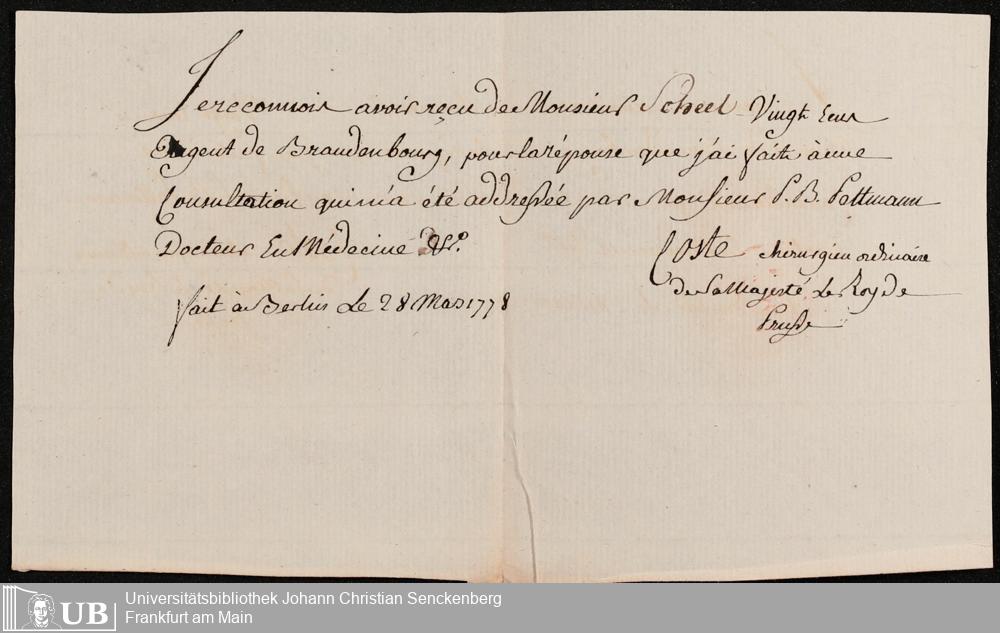 Je reconnois avoir reçu de Monsieur Scheel Vingt Ecus
Argent de Brandenbourg, pour la réponse que j'ai fait à une
Consultation qui m'a été addressée par Monsieur P. B. Pottmann
Docteur En Médecine &c.
Coste chirurgien ordinaire
de Sa Majesté Le Roy de
Prusse
fait à Berlin Le 28 Mars 1778
UB
Universitätsbibliothek Johann Christian Senckenberg
Frankfurt am Main